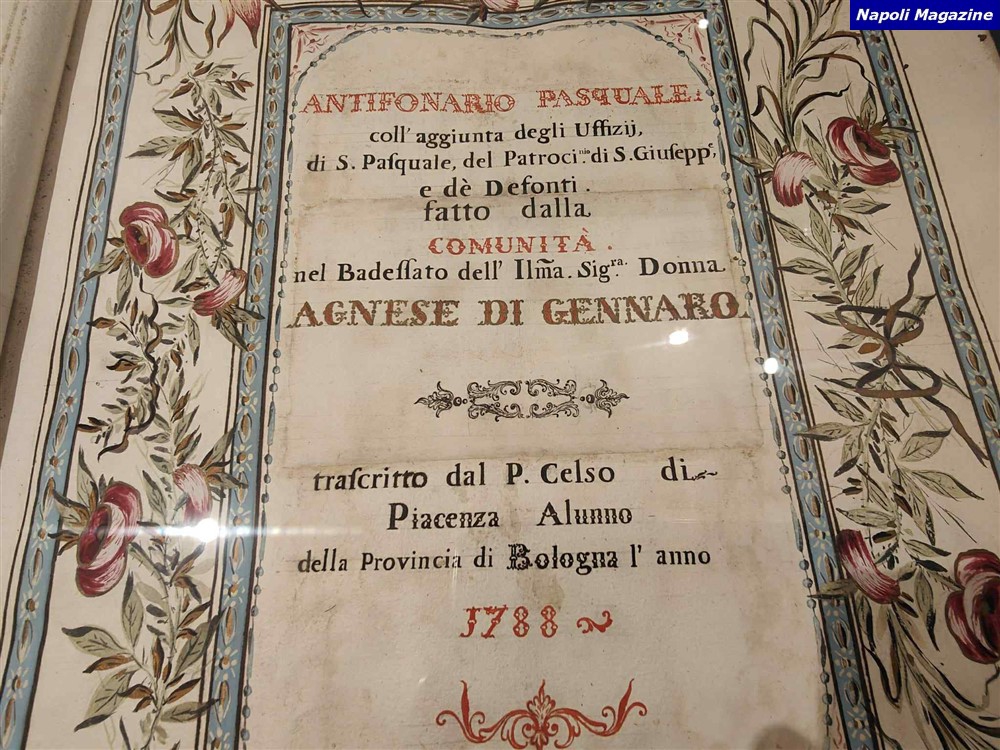 Napoli Magazine
ANTIFONARIO PASQUALE.
coll' aggiunta degli Uffizij,
di S. Pasquale, del Patroci.nio di S. Giuſeppe,
e dè Defonti.
fatto dalla
COMUNITÀ.
nel Badeſſato dell' Ilm̃a. Sig.ra Donna
AGNESE DI GENNARO
traſcritto dal P. Celso di
Piacenza Alunno
della Provincia di Bologna l' anno
1788